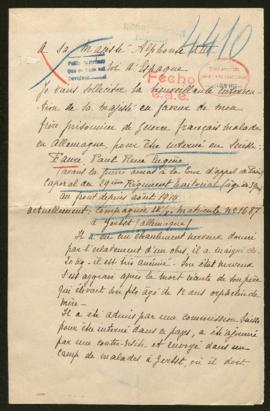 4410
A Sa Majesté Alphonse XIII
Roi d'Espagne
Fecho
Je viens solliciter la bienveillante interven-
tion de Sa Majesté en faveur de mon
frère prisonnier de Guerre français malade
en Allemagne, pour être interné en Suisse.
Faure Paul René Eugène
(avant la guerre avocat à la Cour d'appel de Paris)
Caporal du 29me Régiment Territorial
au front depuis août 1914
actuellement: Compagnie matricule no 1687
à Zerbst (Allemagne)
Il a eu un ébranlement nerveux donné
par l'éclatement d'un obus, il a maigri de
20 kg. il est très anémié. Son état nerveux
s'est aggravé après la mort récente de son père
qui élevait son fils âgé de 12 ans orphelin de
mère.
Il a été admis par une commission Suisse
pour être interné dans ce pays, a été ajourné
par une contre-visite et envoyé dans un
camp de malades à Zerbst, où il doit